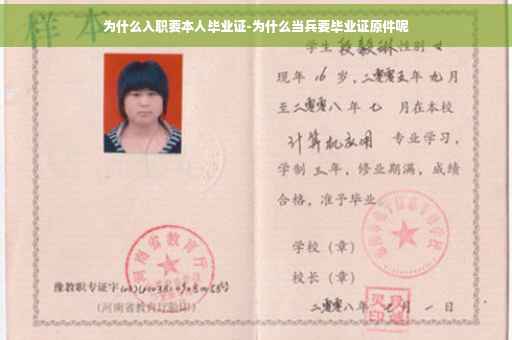 为什么入职要本人毕业证-为什么当兵要毕业证原件呢
样本
学生段毅琳性别女
现年16岁,二零零五年九月
至二零零八年七月在本校
计算机应用 专业学习,
学制三年,修业期满,成绩
合格,准予毕业
学校(章)
校长(章)
二零零八年 月一日
河南省教育厅
豫教职专证字
(河南省教育厅验印)